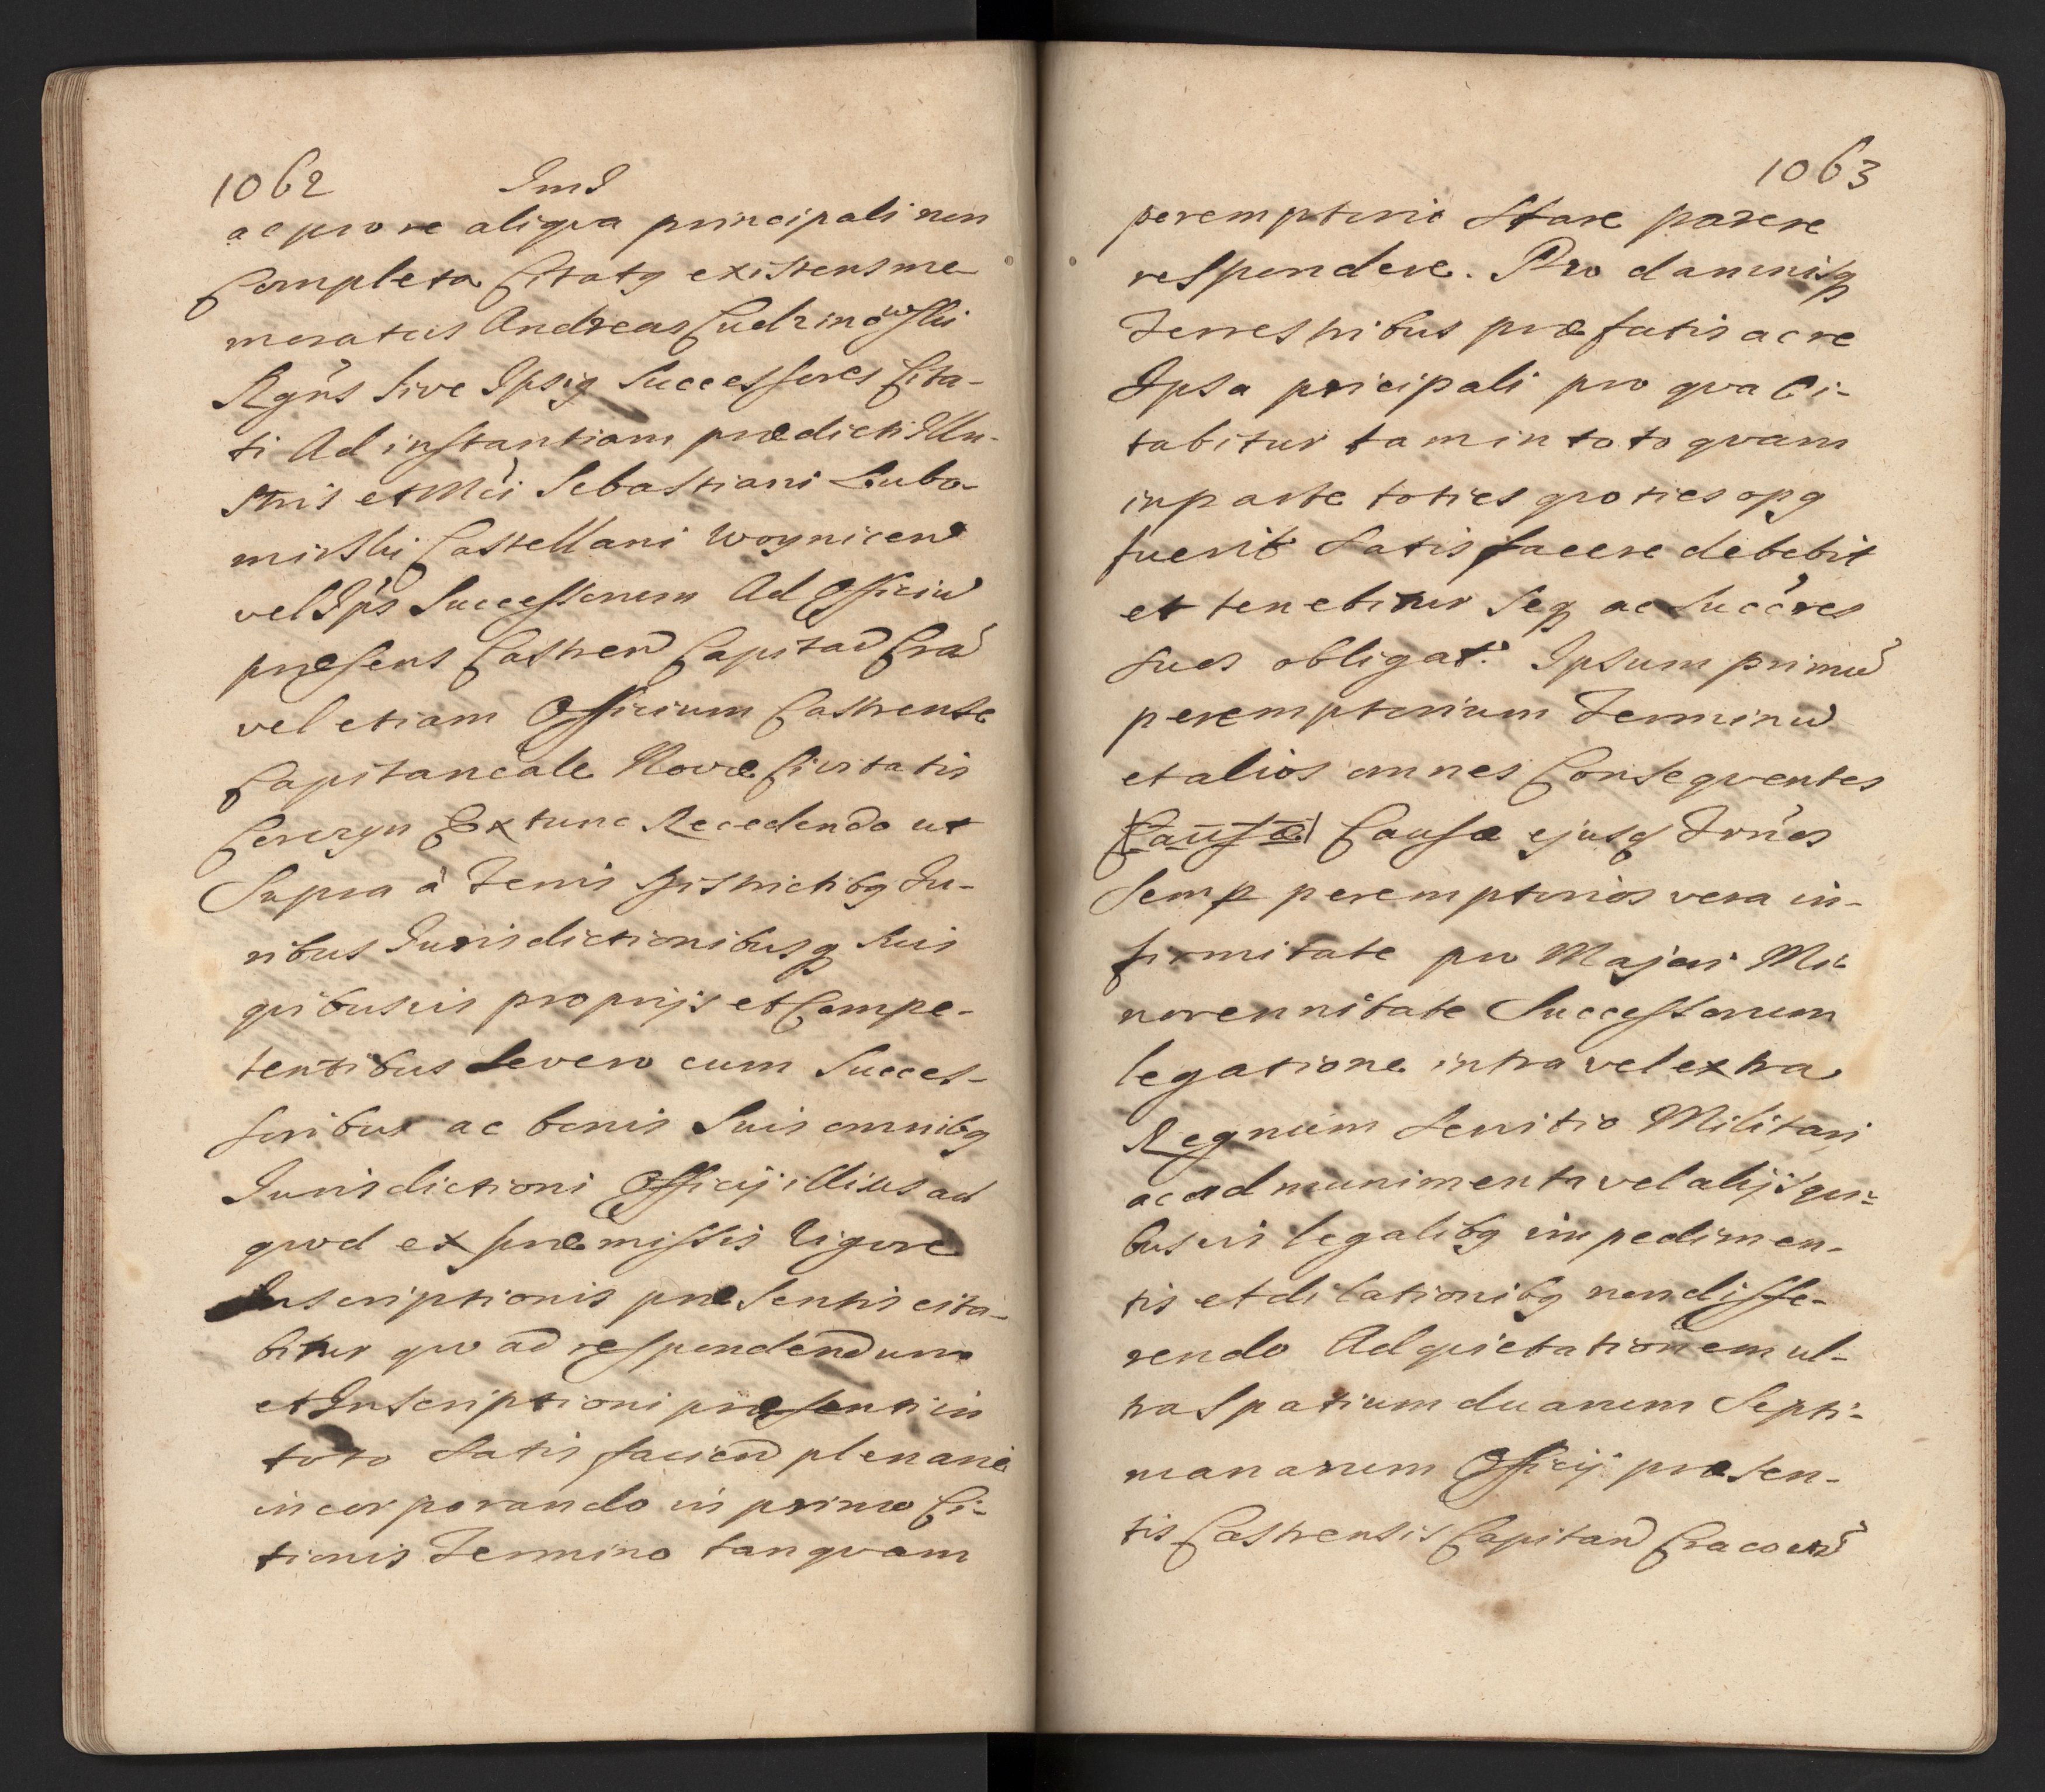 1062 ImI
ac pro re aliqva principali non
Completa Citatq existens me-
moratus Andreas Cudzinowski
Rgñs sive Ipsiq Successores Cita-
ti Ad instantiam prædicti Illu-
stris et Mci Sebastiani Lubo-
mirski Castellani Woynicen
vel Ips Successorum Ad Officiu
præsens Castren Capitan Cra
vel etiam Officium Castrense
Capitaneale Novæ Civitatis
Corczyn Ex tunc Recedendo ut
Supra à Terris Districtibq Ju-
ribus Jurisdictionibusq suis
qvibusvis proprijs et Compe-
tentibus se vero cum Succes-
soribus ac bonis suis omnibq
Jurisdictioni Officij illius ad
qvod ex præmissis vigore
Inscriptionis præsentis cita-
bitur qvo ad respondendum
et Inscriptioni præsenti in
toto satisfaciend plenarie
incorporando in primo Ci-
tionis Termino tanqvam
1063
peremptorie stare parere
respondere. Pro damnisq
Terrestribus præfatis ac re
Ipsa pricipali pro qva Ci-
tabitur tam in toto qvam
in parte toties qvoties opq
fuerit satisfacere debebit
et tenebitur seq ac Succres
suos obligat. Ipsum primu
peremptorium Terminu
et alios omnes Conseqventes
Causæ Causæ ejusq Trnos
semp peremptorios vera in-
firmitate pro Majori Mi-
norennitate Successorum
legatione intra vel extra
Regnum servitio Militari
ac ad munimenta vel alijs qvi-
busvis legalibq impedimen-
tis et dilationibq non diffe-
rendo Ad qvietationem ul-
tra spatium duarum Septi-
manarum Officij præsen-
tis Castrensis Capitan Cracovien